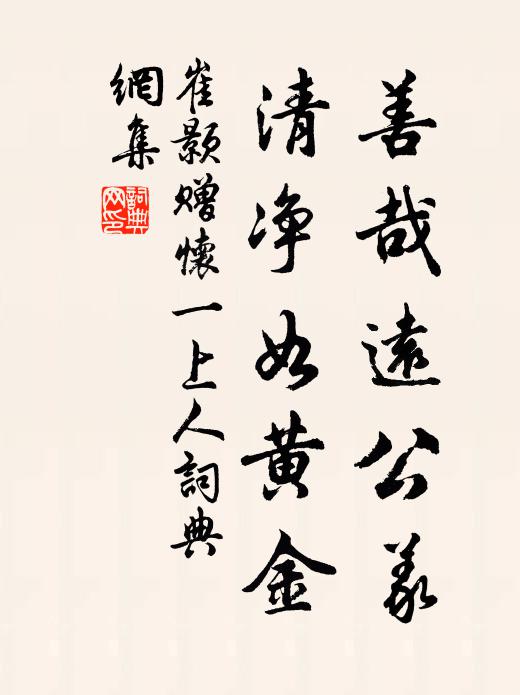 善哉遠公義
清净如黄金
崔顥贈懷一上人詞典
網集
詞典
网印